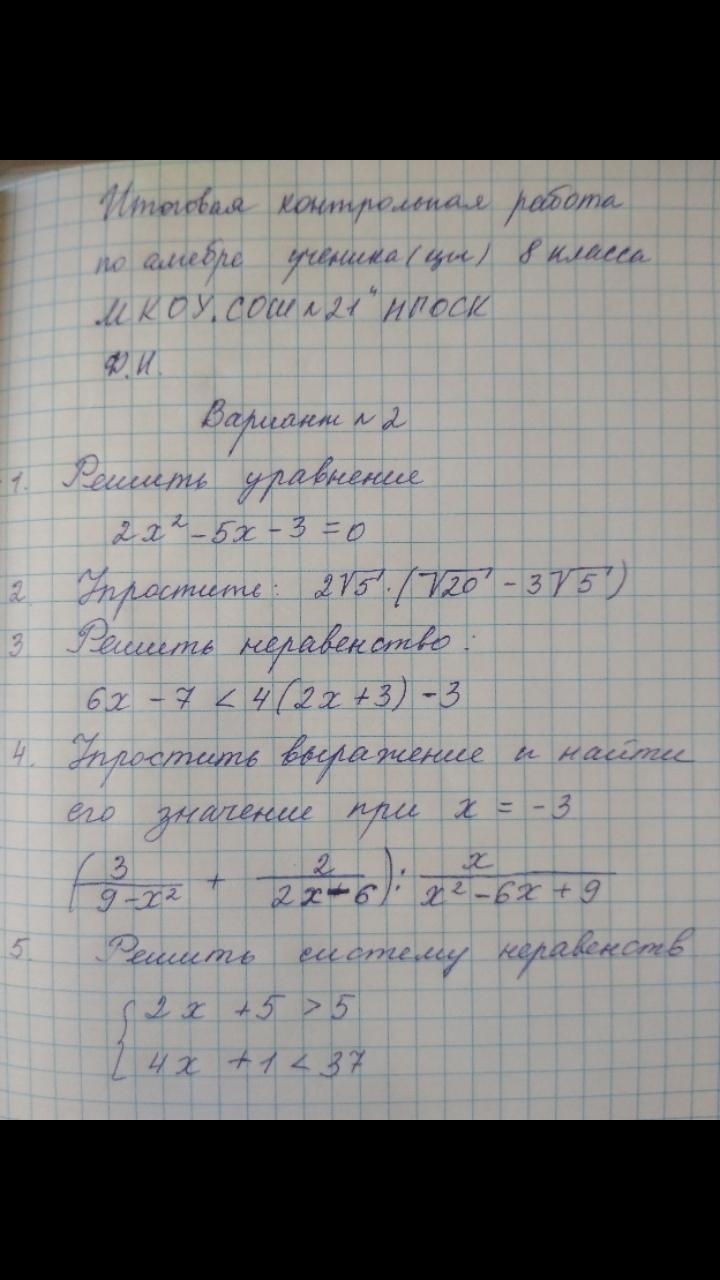 Итоговая контрольная работа
по алгебре ученика (цы) 8 класса
МКОУ. СОШ №21" НПОСК
Ф.И.
Вариант №2
1. Решить уравнение
2x² - 5x - 3 = 0
2. Упростить: 2√5 · (√20 - 3√5)
3 Решить неравенство:
6x - 7 < 4(2x + 3) - 3
4. Упростить выражение и найти
его значение при x = -3
(3/(9 - x²) + 2/(2x - 6)) : x/(x² - 6x + 9)
5. Решить систему неравенств
{ 2x + 5 > 5
4x + 1 < 37